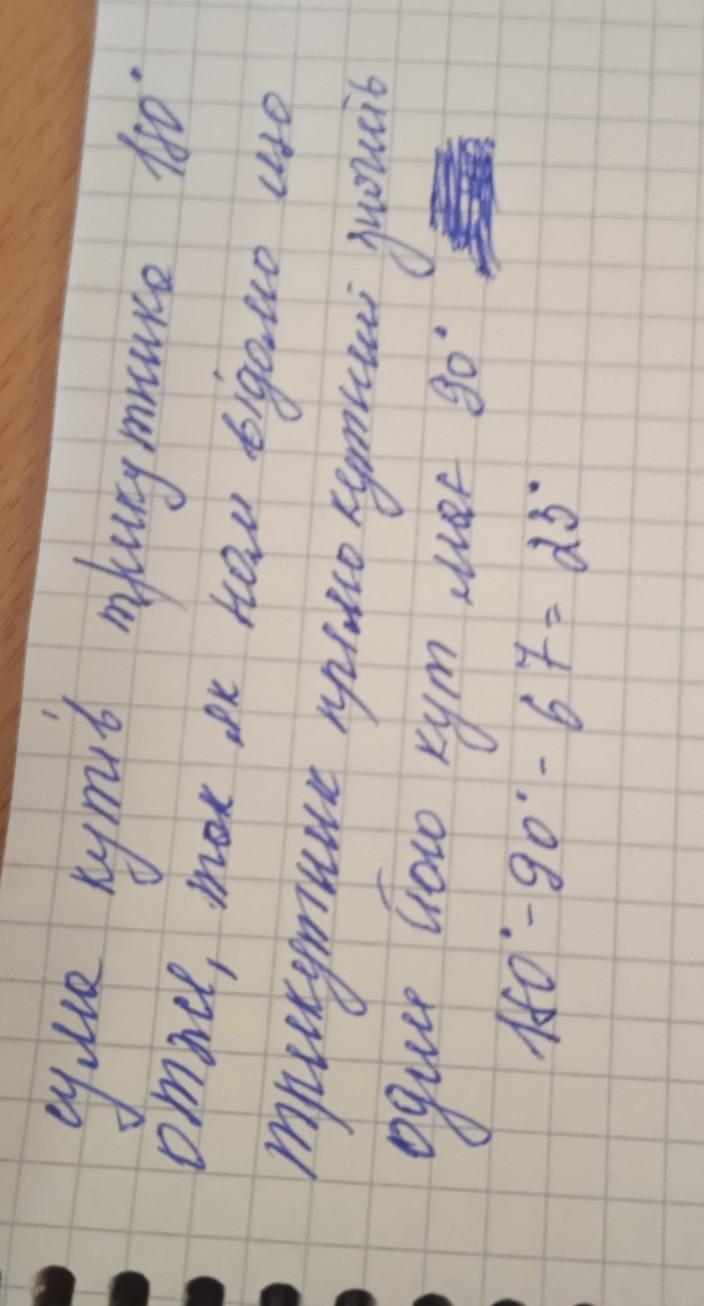 сума кутів трикутника 180°
отже, так як нам відомо що
трикутник прямокутний значить
один його кут має 90°
180° - 90° - 67 = 23°